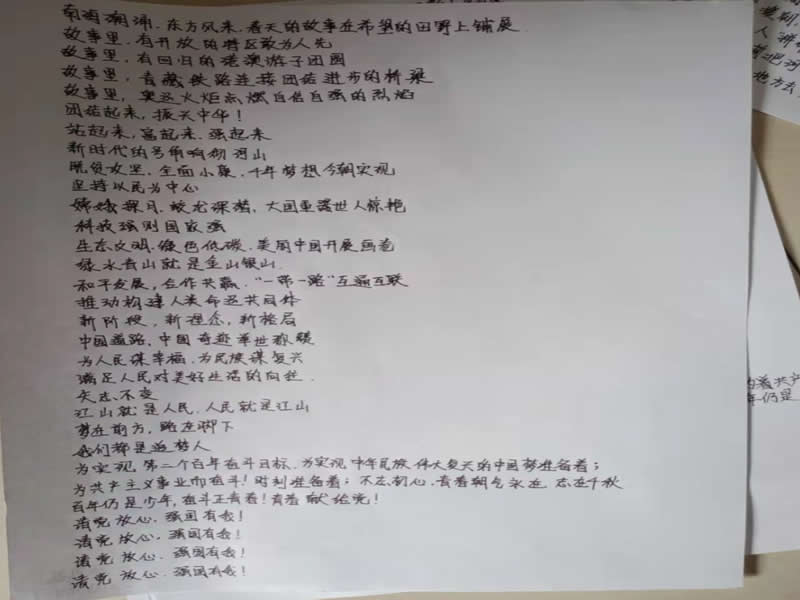 南海潮涌，东方风来，春天的故事在希望的田野上铺展
故事里，有开放的特区敢为人先
故事里，有回归的港澳游子团圆
故事里，青藏铁路连接团结进步的桥梁
故事里，奥运火炬点燃自信自强的烈焰
团结起来，振兴中华！
站起来，富起来，强起来
新时代的号角响彻河山
脱贫攻坚，全面小康，千年梦想今朝实现
坚持以民为中心
嫦娥探月，蛟龙深潜，大国重器世人惊艳
科技强则国家强
生态文明，绿色低碳，美丽中国开展画卷
绿水青山就是金山银山
和平发展，合作共赢，“一带一路”互通互联
推动构建人类命运共同体
新阶段，新理念，新格局
中国道路，中国奇迹举世称赞
为人民谋幸福，为民族谋复兴
满足人民对美好生活的向往
矢志不变
江山就是人民，人民就是江山
梦在前方，路在脚下
我们都是追梦人
为实现第二个百年奋斗目标，为实现中华民族伟大复兴的中国梦准备着；
为共产主义事业而奋斗！时刻准备着；不忘初心，青春朝气永在，志在千秋
百年仍是少年，奋斗正青春！青春献给党！
请党放心，强国有我！
请党放心，强国有我！
请党放心，强国有我！
请党放心，强国有我！